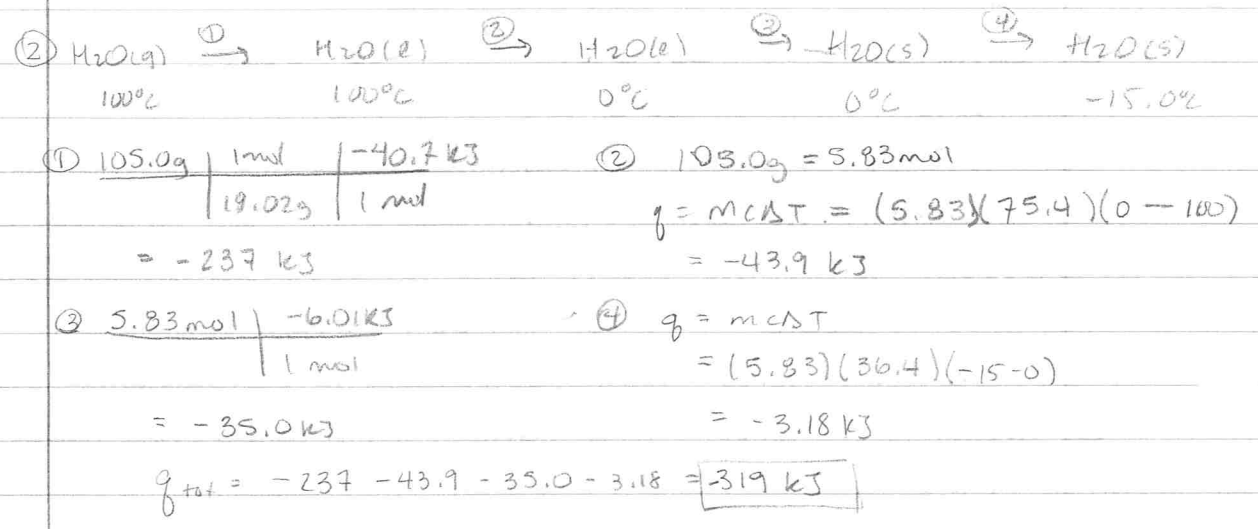 ② H2O(g) ①→ H2O(l) ②→ H2O(l) ③→ H2O(s) ④→ H2O(s)
100°C 100°C 0°C 0°C -15.0°C
① 105.0g | 1mol | -40.7 kJ
19.02g | 1 mol
= -237 kJ
② 105.0g = 5.83mol
q = mCΔT = (5.83)(75.4)(0 - 100)
= -43.9 kJ
③ 5.83mol | -6.01kJ
1 mol
= -35.0 kJ
④ q = mCΔT
= (5.83)(36.4)(-15-0)
= -3.18 kJ
q tot = -237 -43.9 - 35.0 - 3.18 = -319 kJ